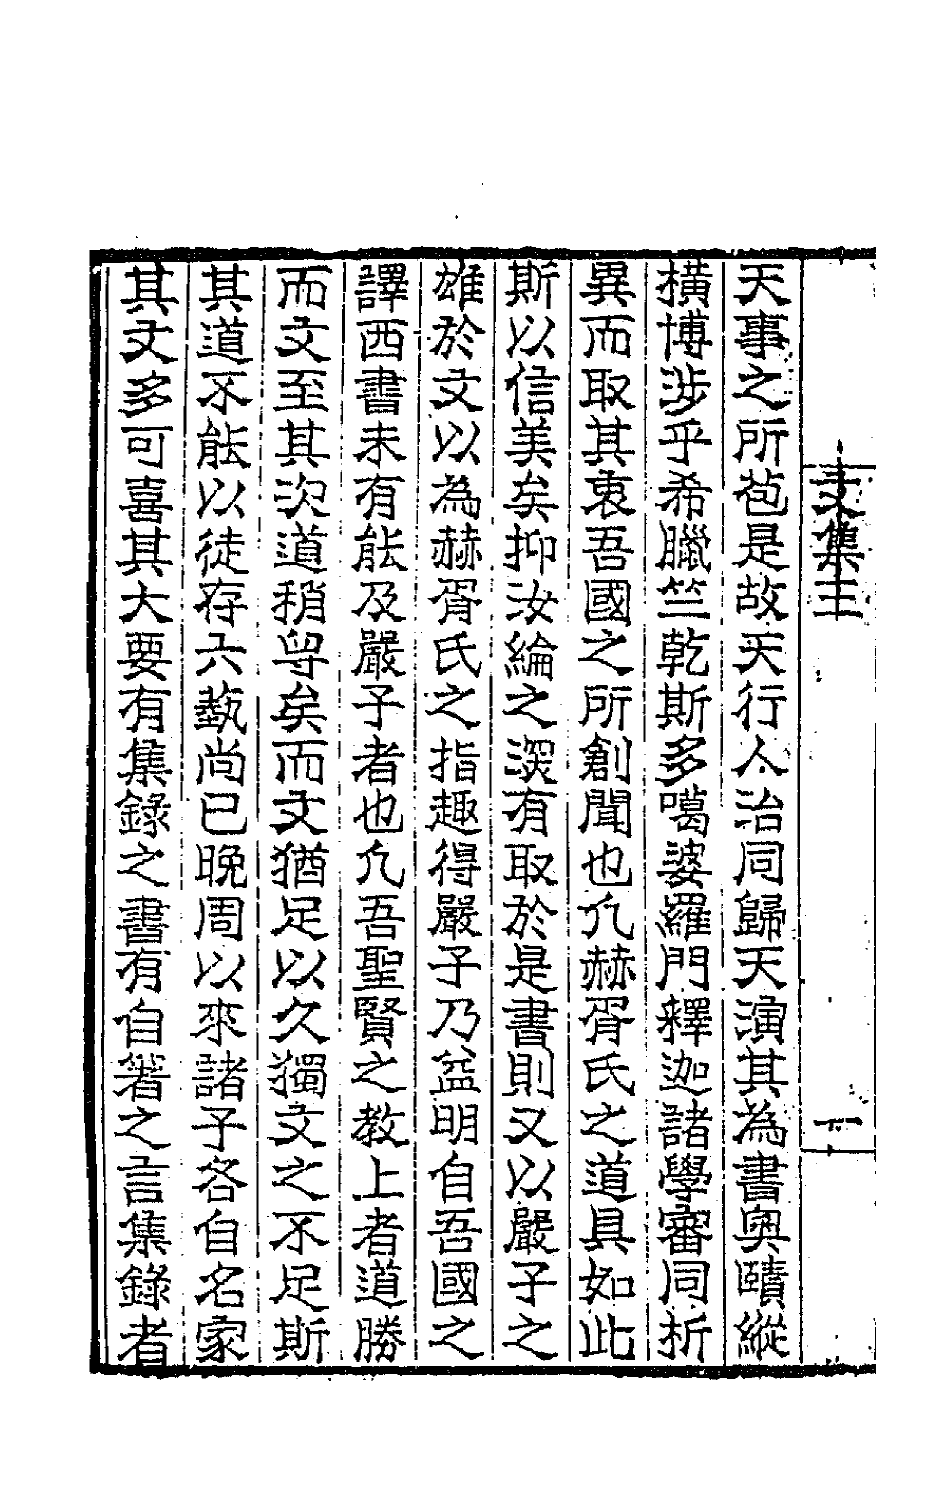 文集三
一
天事之所苞是故天行人治同歸天演其為書奧賾縱
橫博涉乎希臘竺乾斯多噶婆羅門釋迦諸學審同析
異而取其衷吾國之所創聞也凡赫胥氏之道具如此
斯以信美矣抑汝綸之深有取於是書則又以嚴子之
雄於文以為赫胥氏之指趣得嚴子乃益明自吾國之
譯西書未有能及嚴子者也凡吾聖賢之教上者道勝
而文至其次道稍卑矣而文猶足以久獨文之不足斯
其道不能以徒存六蓺尚已晚周以來諸子各自名家
其文多可喜其大要有集錄之書有自箸之言集錄者